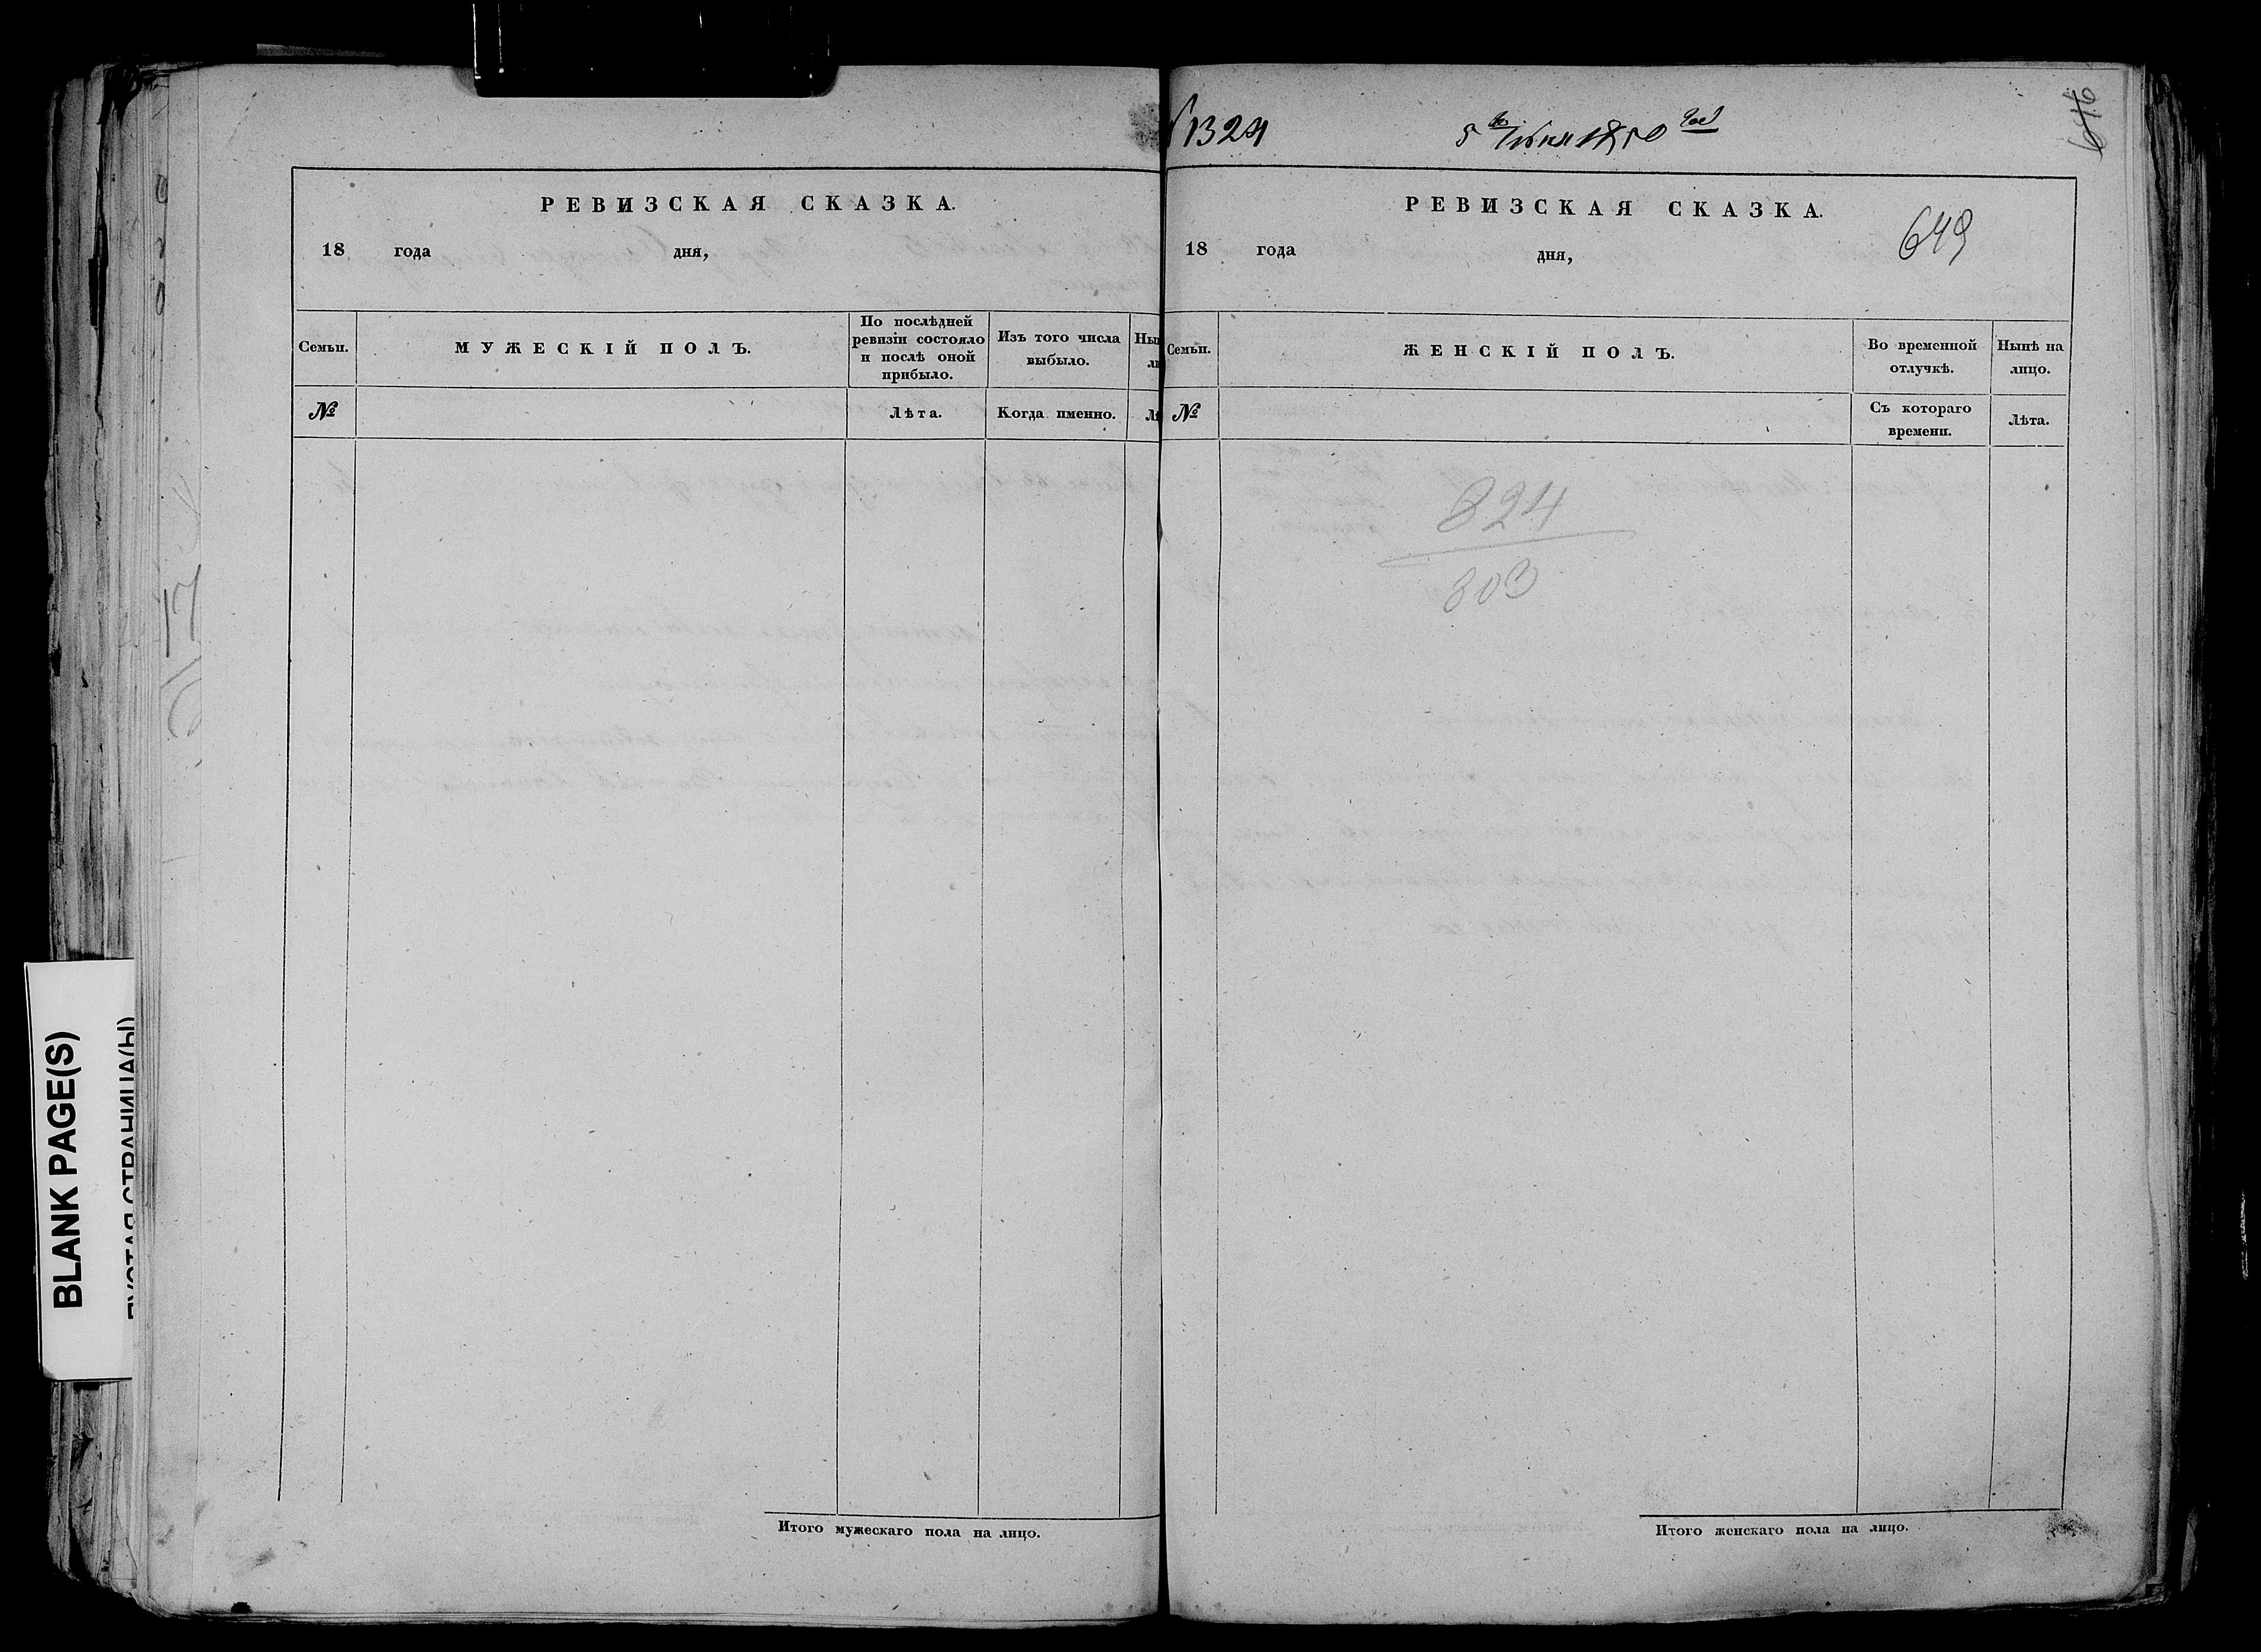 РЕВИЗСКАЯ СКАЗКА.
18 года дня,
Семьи.
МУЖЕСКІЙ ПОЛЪ.
По послѣдней
ревизіи состояло
и послѣ оной
прибыло.
Изъ того числа
выбыло.
№
Лѣта.
Когда именно.
Итого мужескаго пола на лицо.
1324
5 Июня 1850 год
646
РЕВИЗСКАЯ СКАЗКА.
18 года дня,
649
Семьи.
ЖЕНСКІЙ ПОЛЪ.
Во временной
отлучкѣ.
Нынѣ на
лицо.
№
Съ котораго
времени.
Лѣта.
824
803
Итого женскаго пола на лицо.
BLANK PAGE(S)
ПУСТАЯ СТРАНИЦА(Ы)